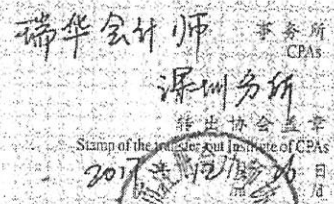 瑞华会计师 事务所
CPAs
深圳分所
转出协会盖章
Stamp of the transfer-out Institute of CPAs
2017 年 12月 26 日
/d